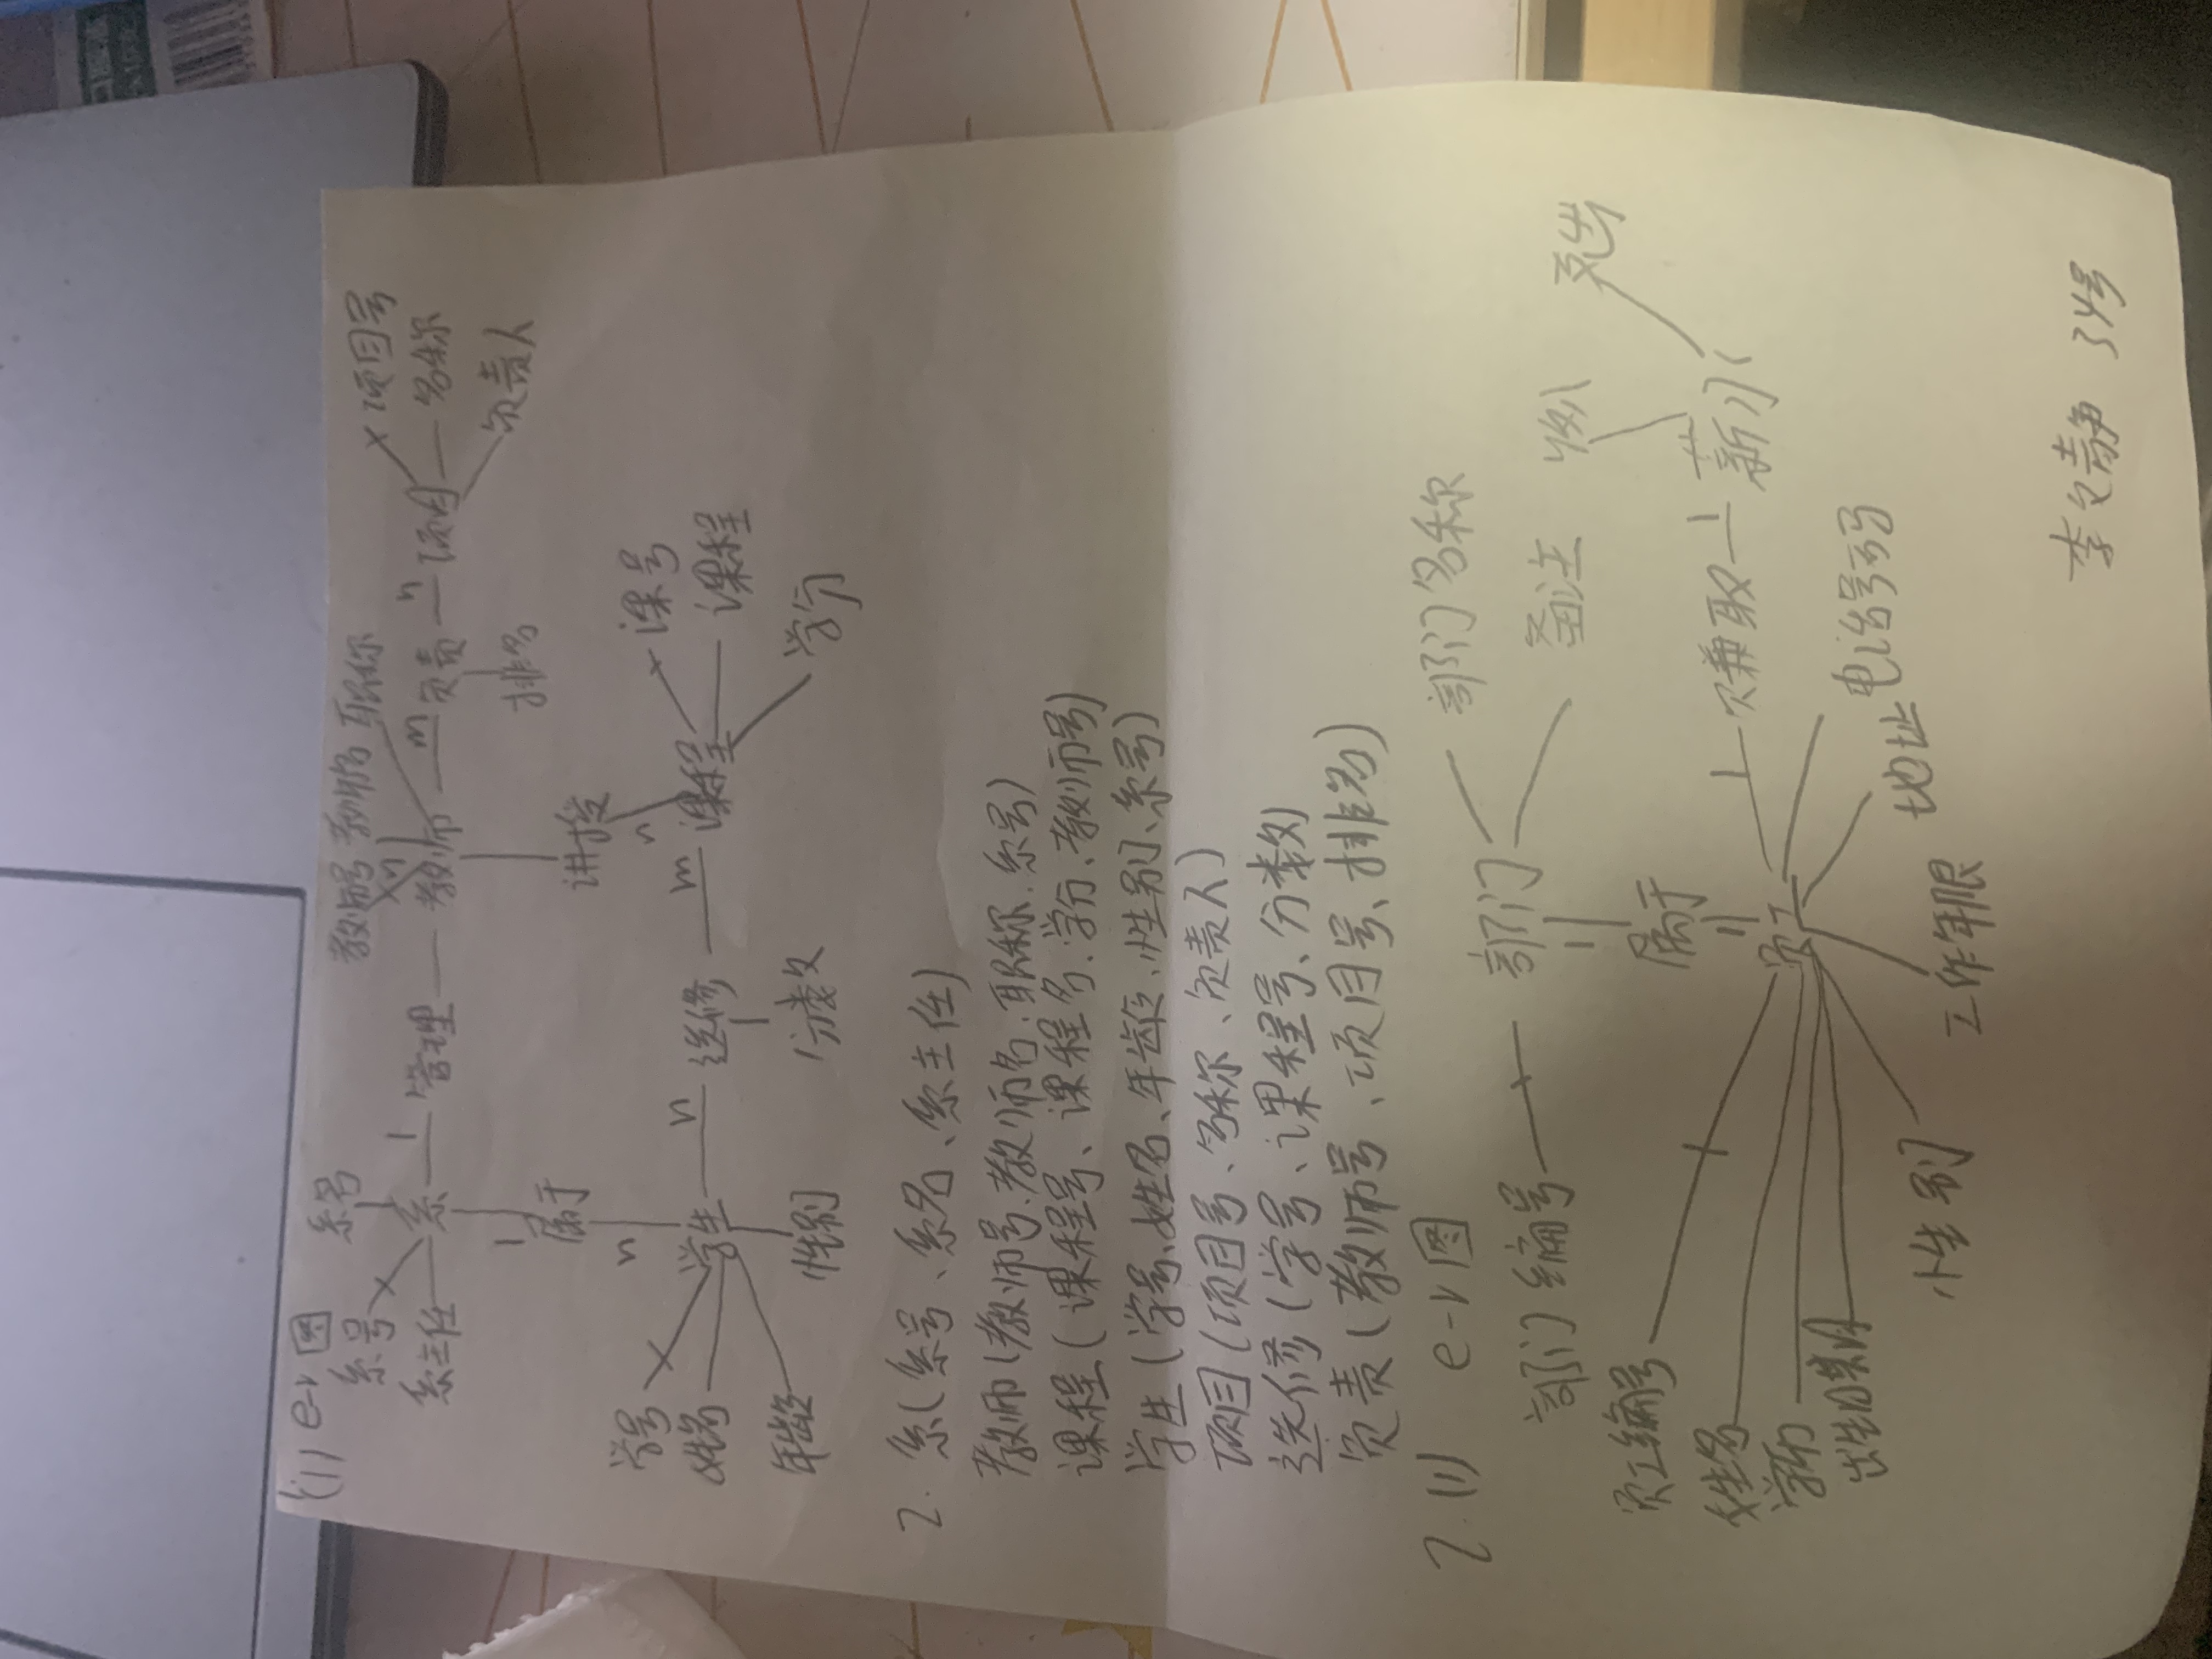 (1) e-r图
系号
系号
系主任
系
1
管理
教师
教师号
教师名
职称
m
负责
n
项目
项目号
名称
负责人
排名
1
属于
n
讲授
n
学生
学号
姓名
年龄
性别
n
选修
m
课程
课号
课程
学分
分数
2. 系(系号、系名、系主任)
教师(教师号、教师名、职称、系号)
课程(课程号、课程名、学分、教师号)
学生(学号、姓名、年龄、性别、系号)
项目(项目号、名称、负责人)
选修(学号、课程号、分数)
负责(教师号、项目号、排名)
2.(1) e-r图
部门编号
部门
部门名称
备注
1
属于
员工
员工编号
姓名
学历
性别
工作年限
地址
电话号码
1
赚取
1
薪水
支出
李文静 34号